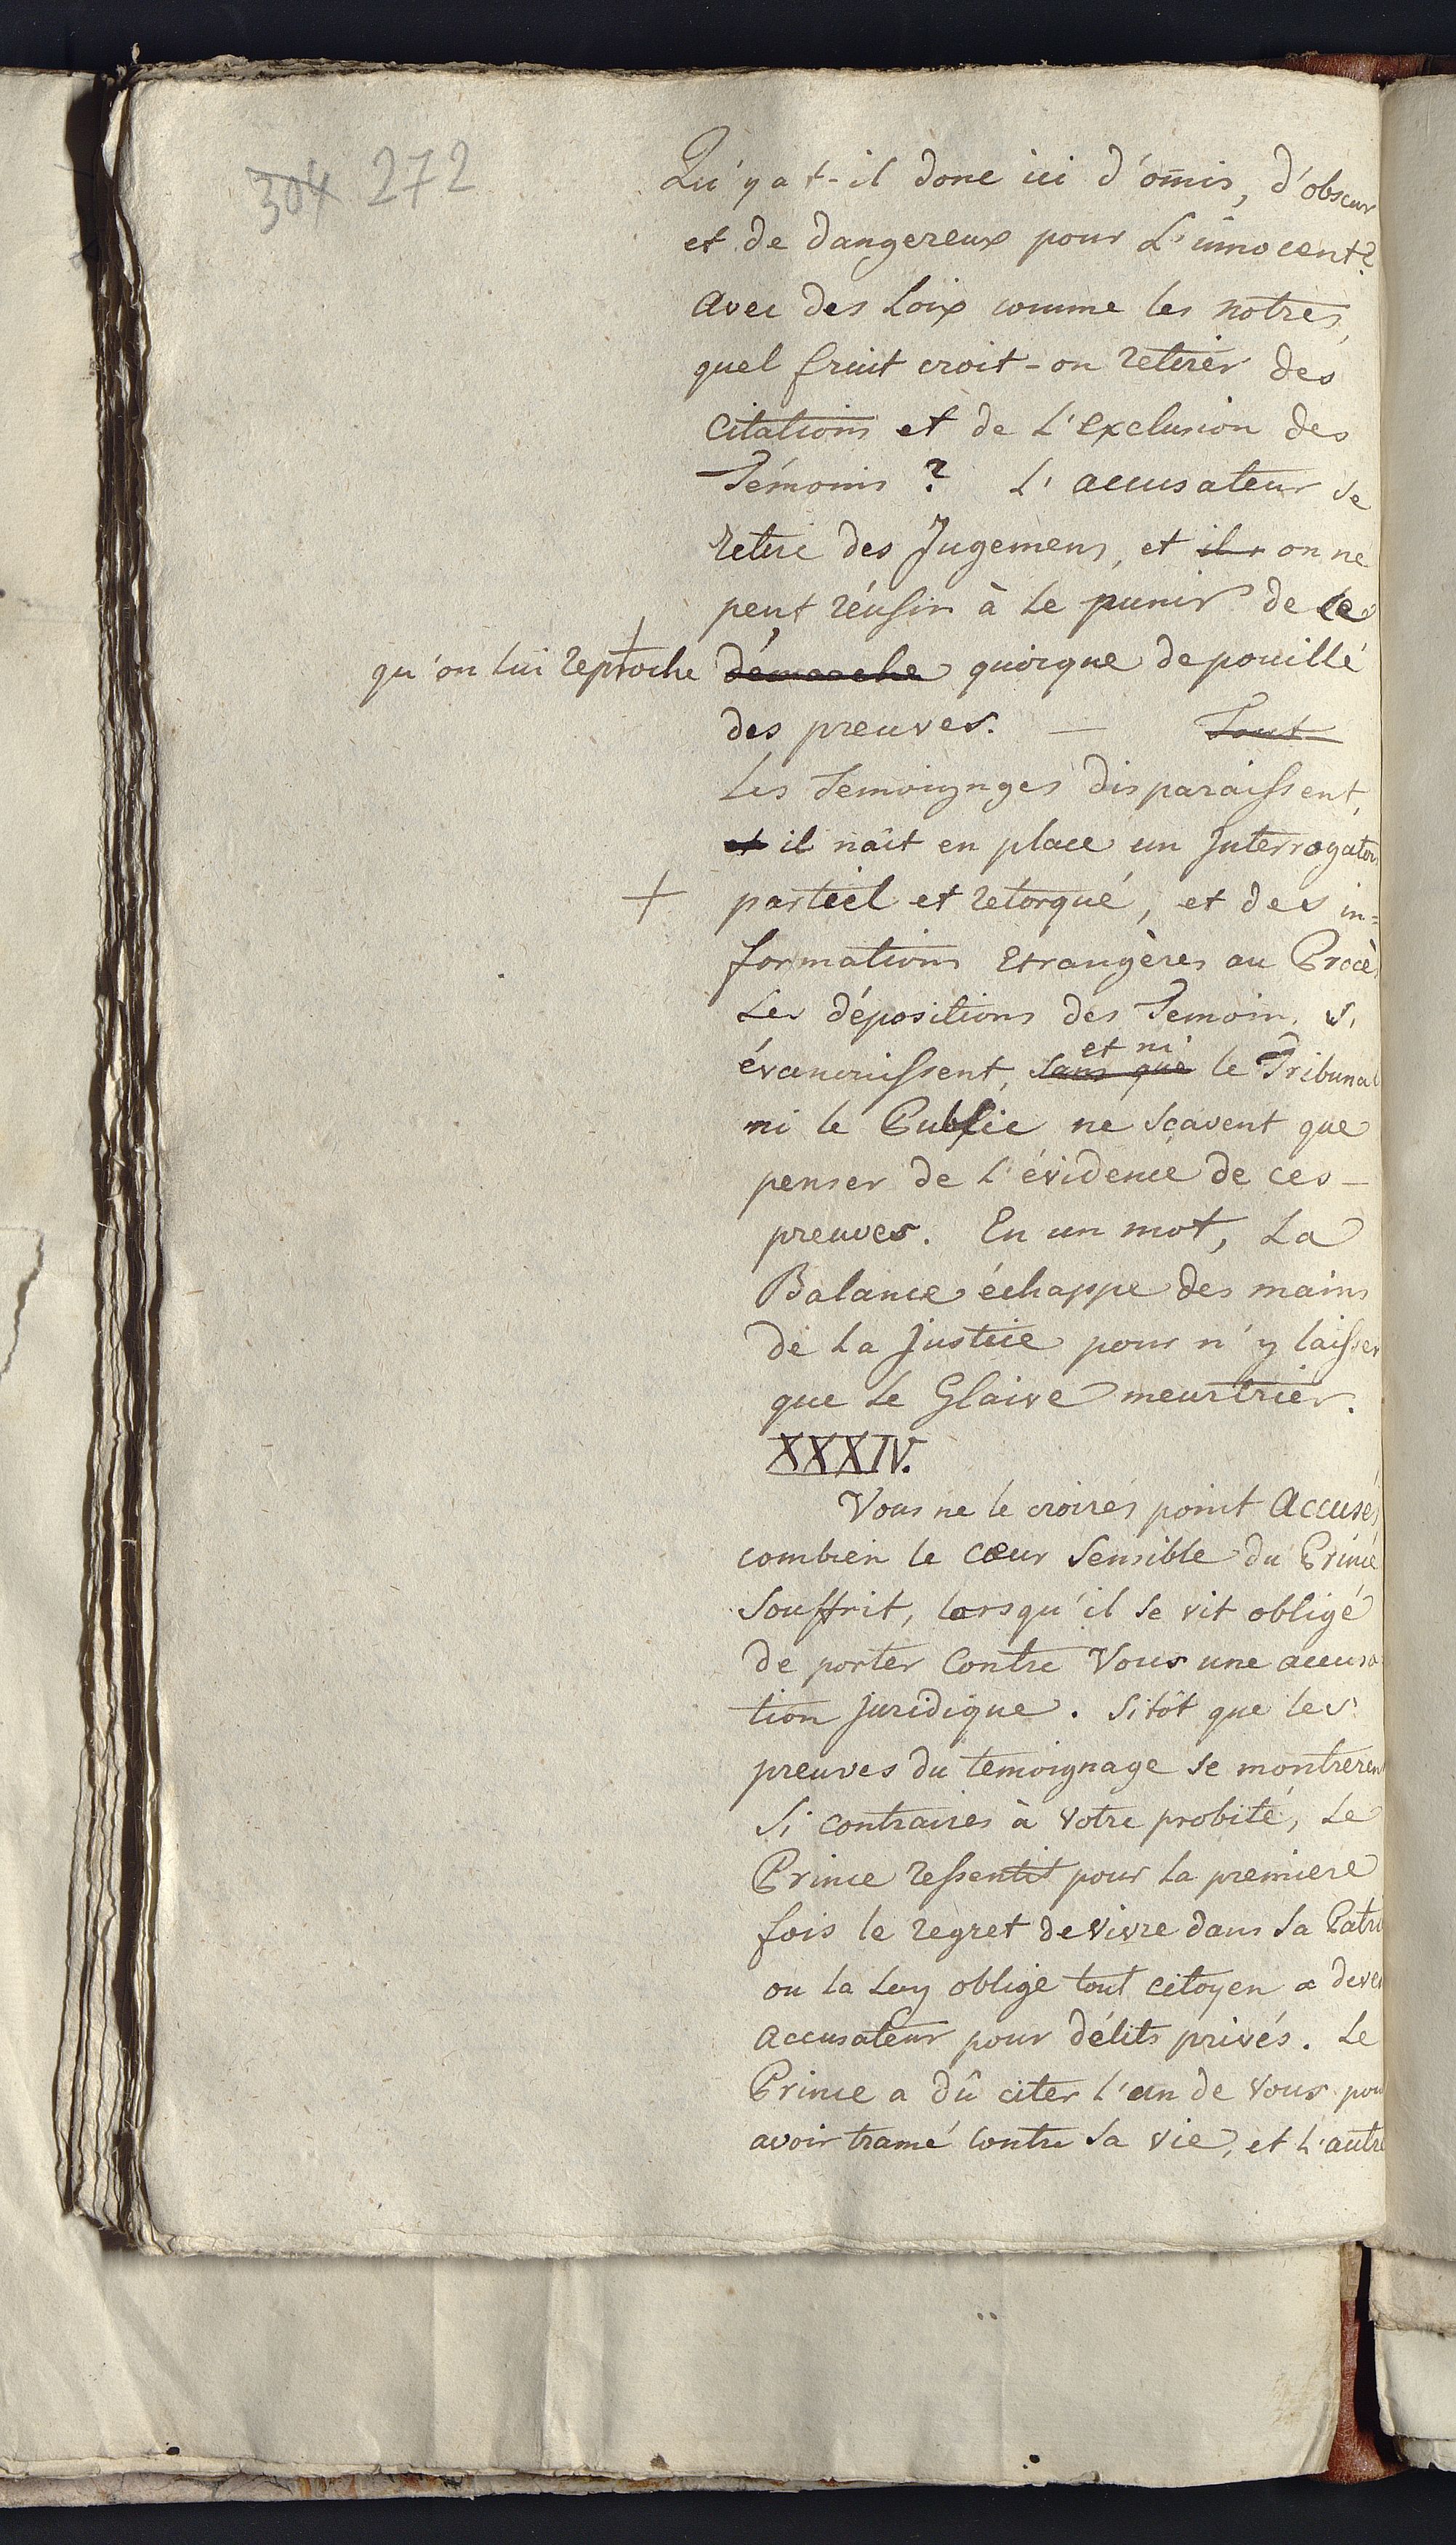 304 272
Qu'y a t-il donc ici d'omis, d'obscur
et de dangereux pour L'innocent?
Avec des Loix comme les notres,
quel fruit croit-on retirer des
Citations et de L'Exclusion des
Témoins ? L'accusateur se
retire des Jugemens, et il on ne
peut réussir à le punir de ce
qu'on lui reproche démarche quoique depouillé
des preuves. — Tout
Les Temoignges disparaissent,
et il naît en place un Interrogatoi
+ partiel et retorqué, et des in=
formations Etrangères au Procès
Les dépositions des Temoins s'
et ni
évanouissent, sans que le Tribunal
ni le Public ne scavent que
penser de L'évidence de ces —
preuves. En un mot, La
Balance échappe des mains
de La Justice pour n'y laisser
que Le Glaive meurtrier.
XXXIV.
Vous ne le croirés point Accusés
combien le cœur Sensible du Prince
Souffrit, lorsqu'il se vit obligé
de porter Contre Vous une accusa
tion Juridique. Sitôt que les
preuves du temoignage se montreren
Si contraires à votre probité, Le
Prince ressentit pour la premiere
fois le regret de vivre dans sa Patri
ou la Loy oblige tout citoyen a deve
Accusateur pour délits privés. Le
Prince a dû citer l'un de Vous pou
avoir tramé contre sa vie, et L'autre